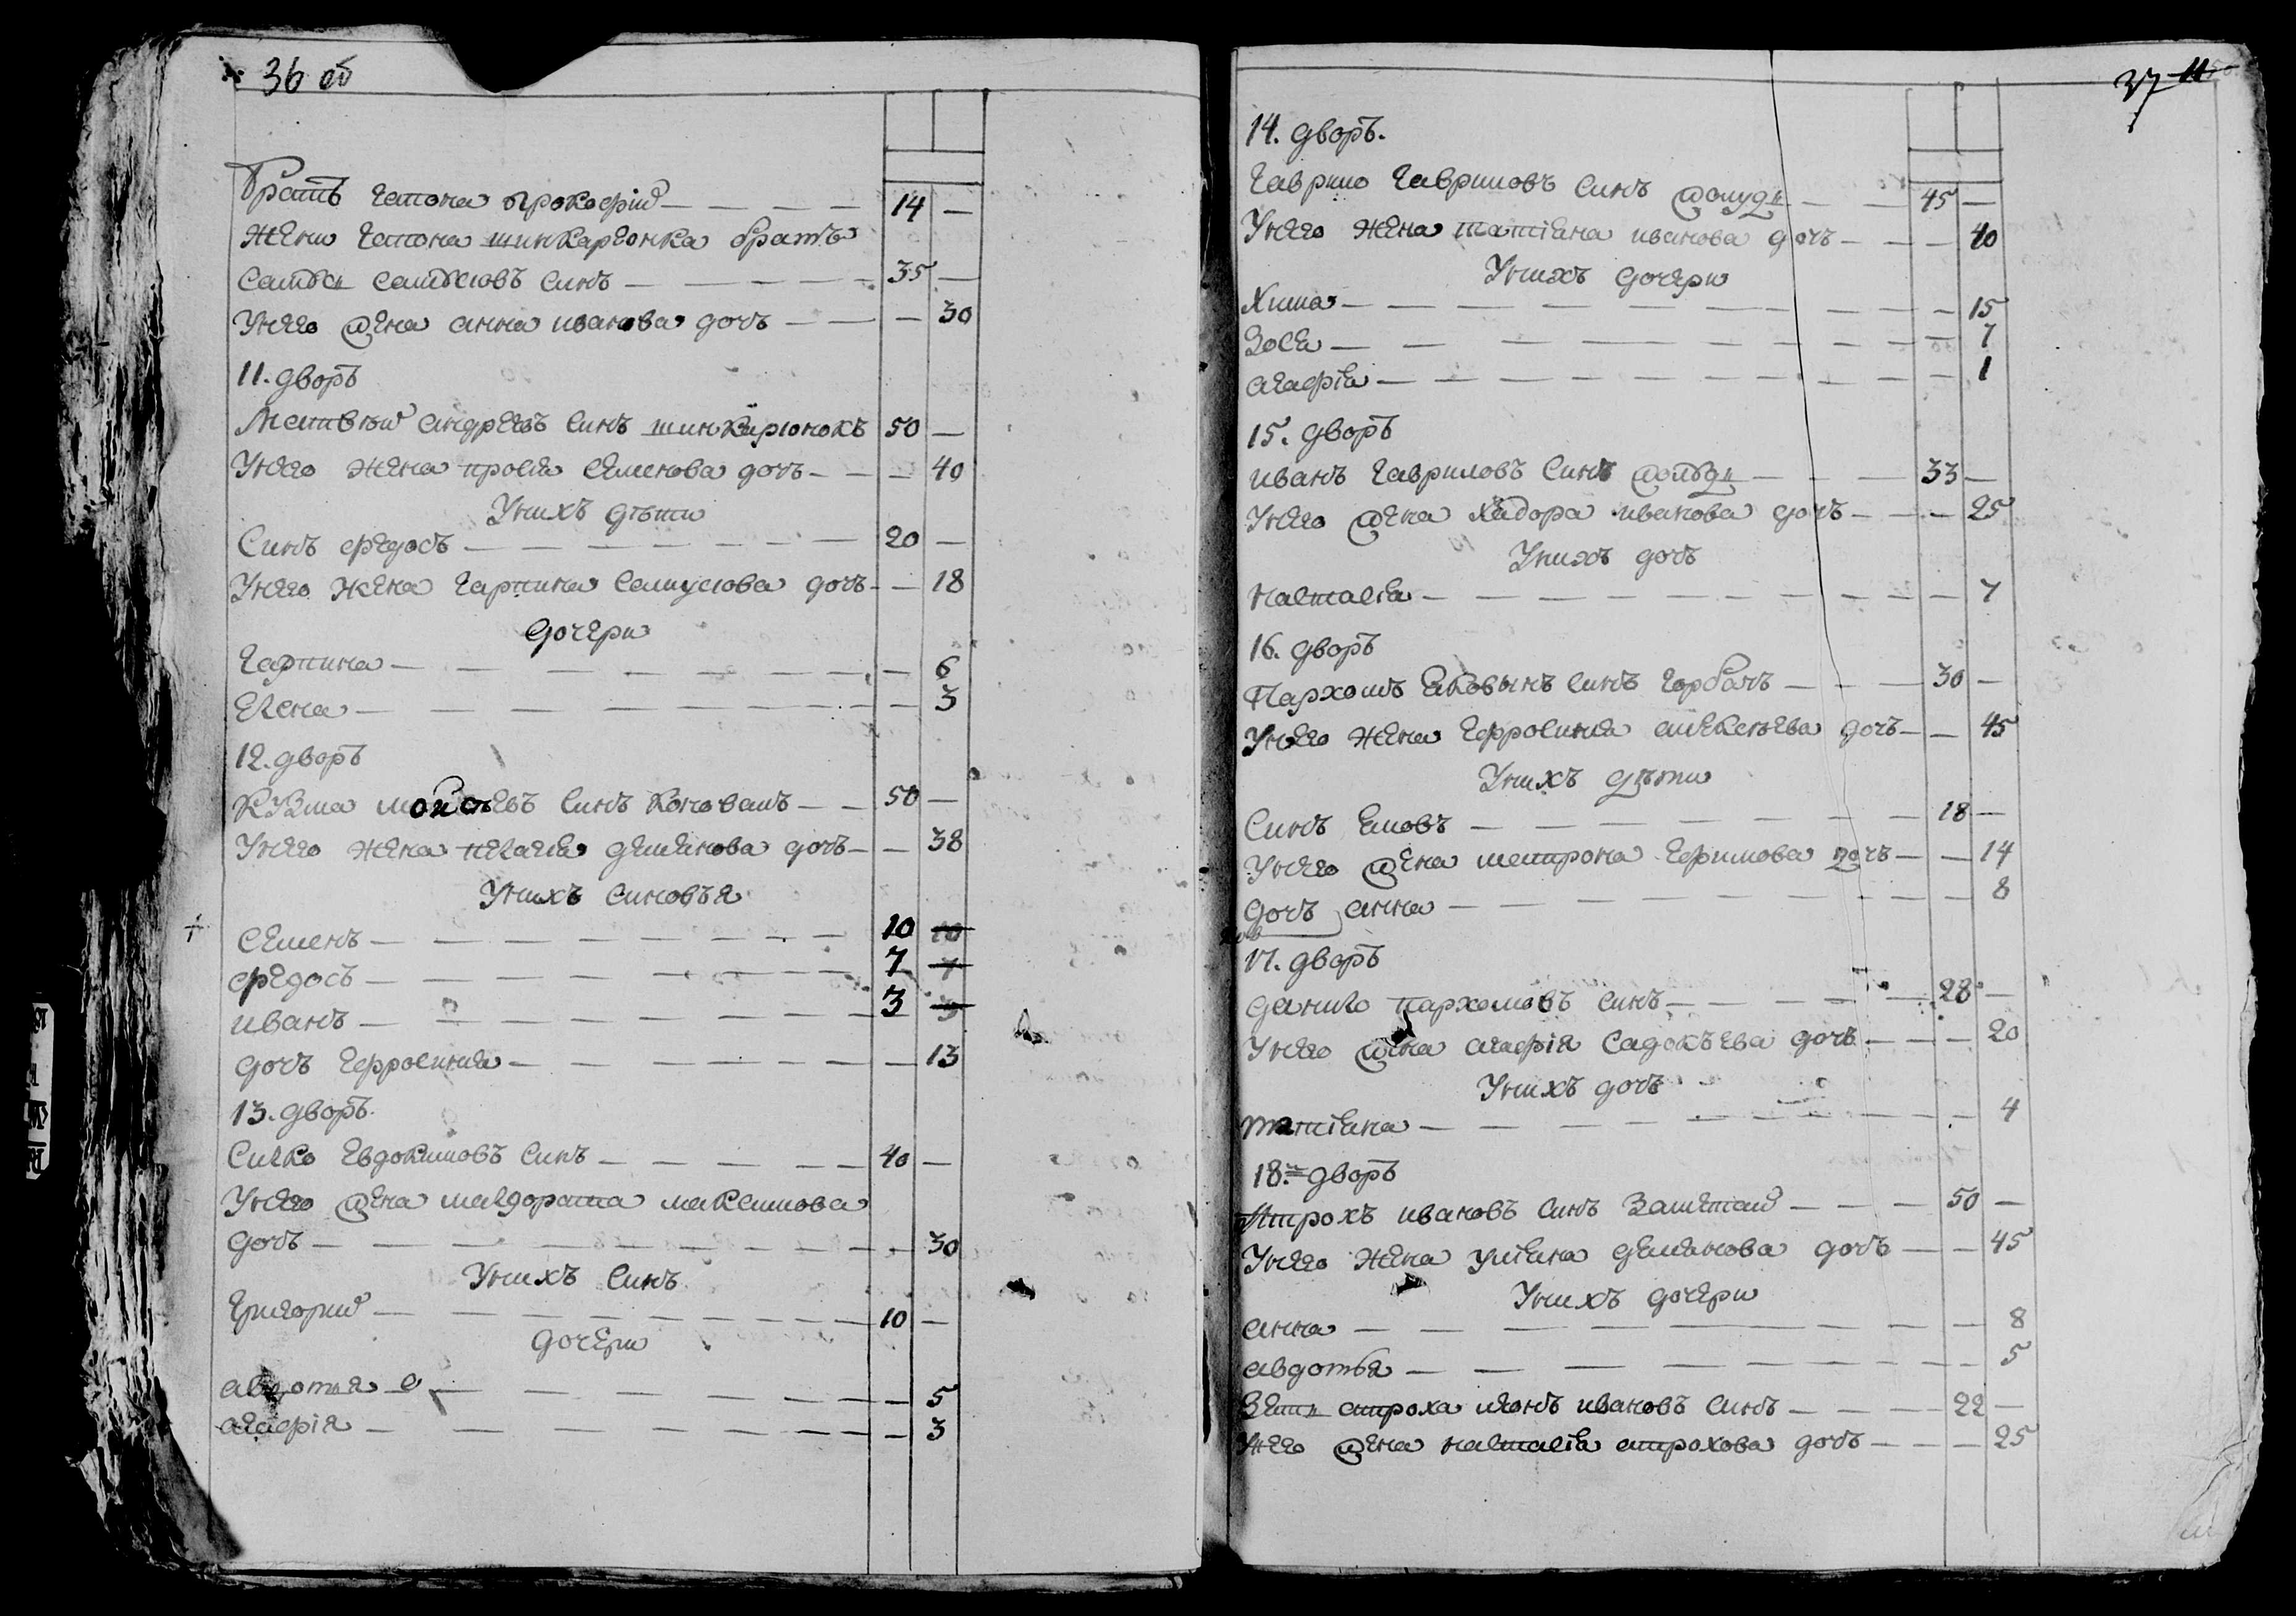 36 об
Братъ гапона Прокофій — 14 —
Жени гапона шинкаренка братъ
синъ — 35 —
Унего жена анна иванова дочъ — 30
11. дворъ
Матвѣй андреевъ синъ шинкарюнокъ 50 —
Унего жена прося семенова дочъ — 40
Унихъ дѣти
Синъ федосъ — 20 —
Унего жена гарпина самусова дочъ — 18
дочери
Гарпина — 6
Елена — 3
12. дворъ
Кузма мойсѣевъ синъ коновалъ — 50 —
Унего жена пелагѣя демянова дочъ — 38
Унихъ синовъя
Семенъ — 10 10
федосъ — 7 7
иванъ — 3 3
дочъ Гефросиния — 13
13. дворъ
Сичко Евдокимовъ синъ — 40 —
Унего жена максимова
дочъ — 30
Унихъ синъ
Григорий — 10 —
дочери
авдотя — 5
агафія — 3
37 11
14. дворъ.
Гаврило Гавриловъ синъ — 45 —
Унего жена татіана иванова дочъ — 40
Унихъ дочери
Хима — 15
Зося — 7
агафіа — 1
15. дворъ
иванъ Гавриловъ синъ — 33 —
Унего жена хадора иванова дочъ — 25
Унихъ дочъ
Насталіа — 7
16. дворъ
Пархомъ синъ Горбачъ — 30 —
Унего жена Гефросиния алексѣева дочъ — 45
Унихъ дѣти
Синъ — 18 —
Унего жена матрона дочъ — 14
дочъ анна — 8
17. дворъ
данило пархомовъ синъ — 28 —
Унего жена агафія садокъева дочъ — 20
Унихъ дочъ
татіана — 4
18. дворъ
Атрохъ ивановъ синъ — 50 —
Унего жена уліана демянова дочъ — 45
Унихъ дочери
анна — 8
авдотья — 5
Зять атроха ивановъ синъ — 22 —
Унего жена насталіа атрохова дочъ — 25